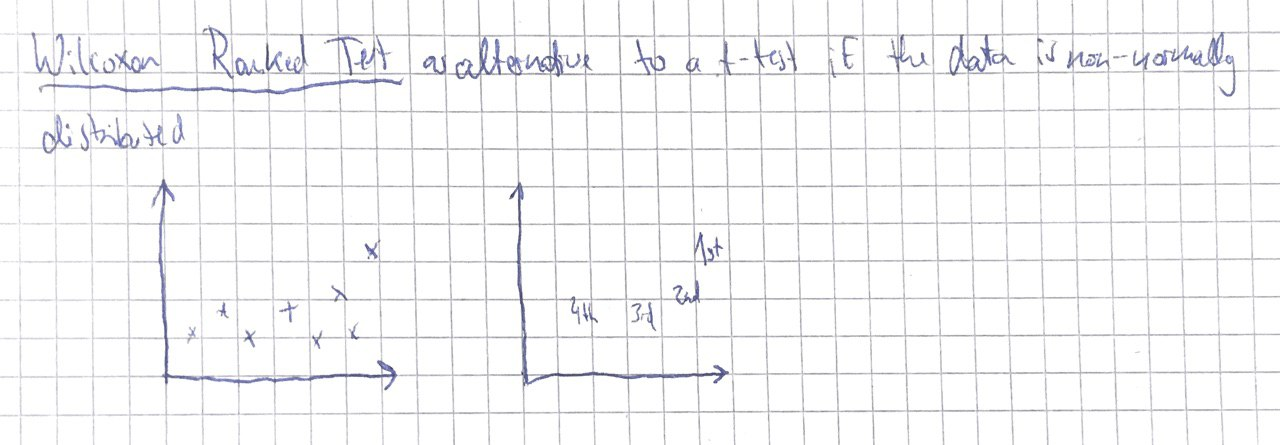 Wilcoxon Ranked Test as alternative to a t-test if the data is non-normally
distributed
1st
2nd
4th 3rd